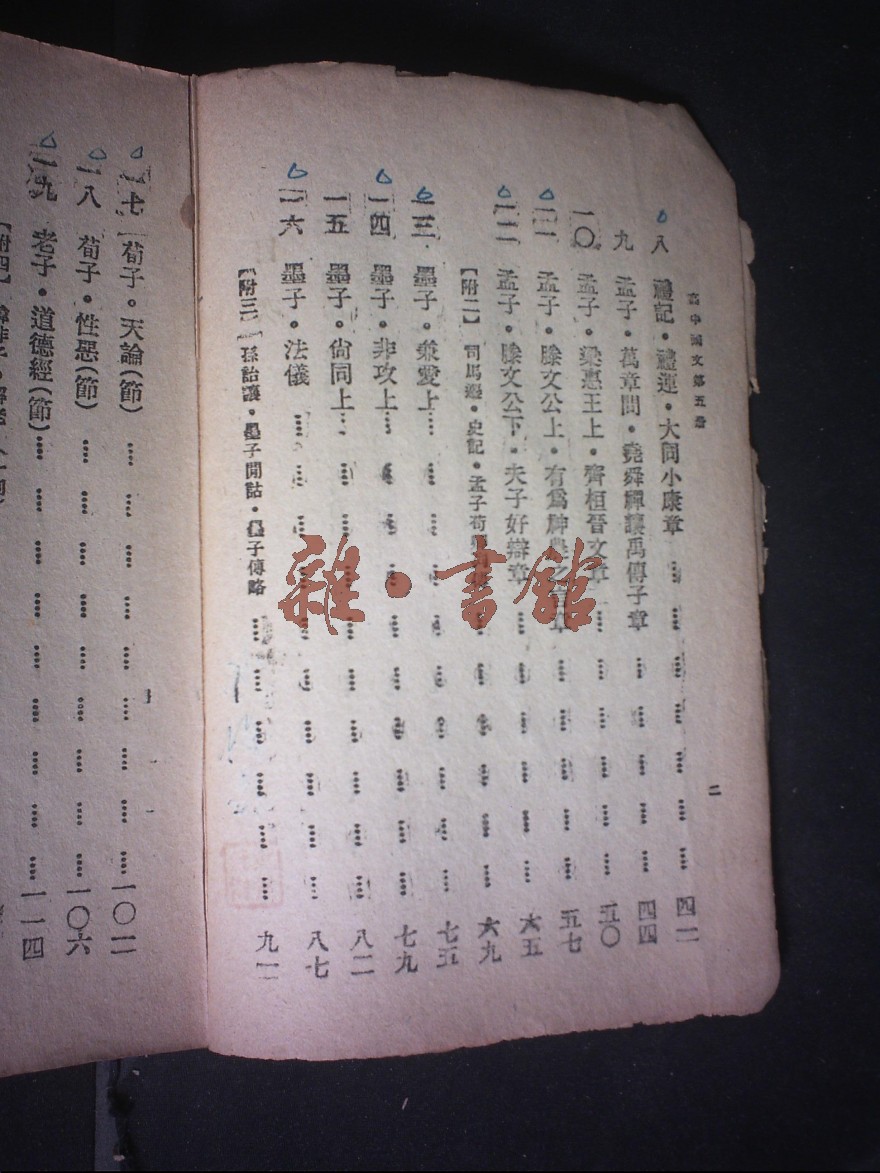 高中國文第五冊
二
八 禮記·禮運·大同小康章 四二
九 孟子·萬章問·堯舜禪讓禹傳子章 四四
一〇 孟子·梁惠王上·齊桓晉文章 五〇
一一 孟子·滕文公上·有爲神農之言章 五七
一二 孟子·滕文公下·夫子好辯章 六五
【附二】 司馬遷·史記·孟子荀 六九
一三 墨子·兼愛上 七五
一四 墨子·非攻上 七九
一五 墨子·尙同上 八二
一六 墨子·法儀 八七
【附三】 孫詒讓·墨子閒詁·墨子傳略 九一
一七 荀子·天論(節) 一〇二
一八 荀子·性惡(節) 一〇六
一九 老子·道德經(節) 一一四
【附四】
雜·書館